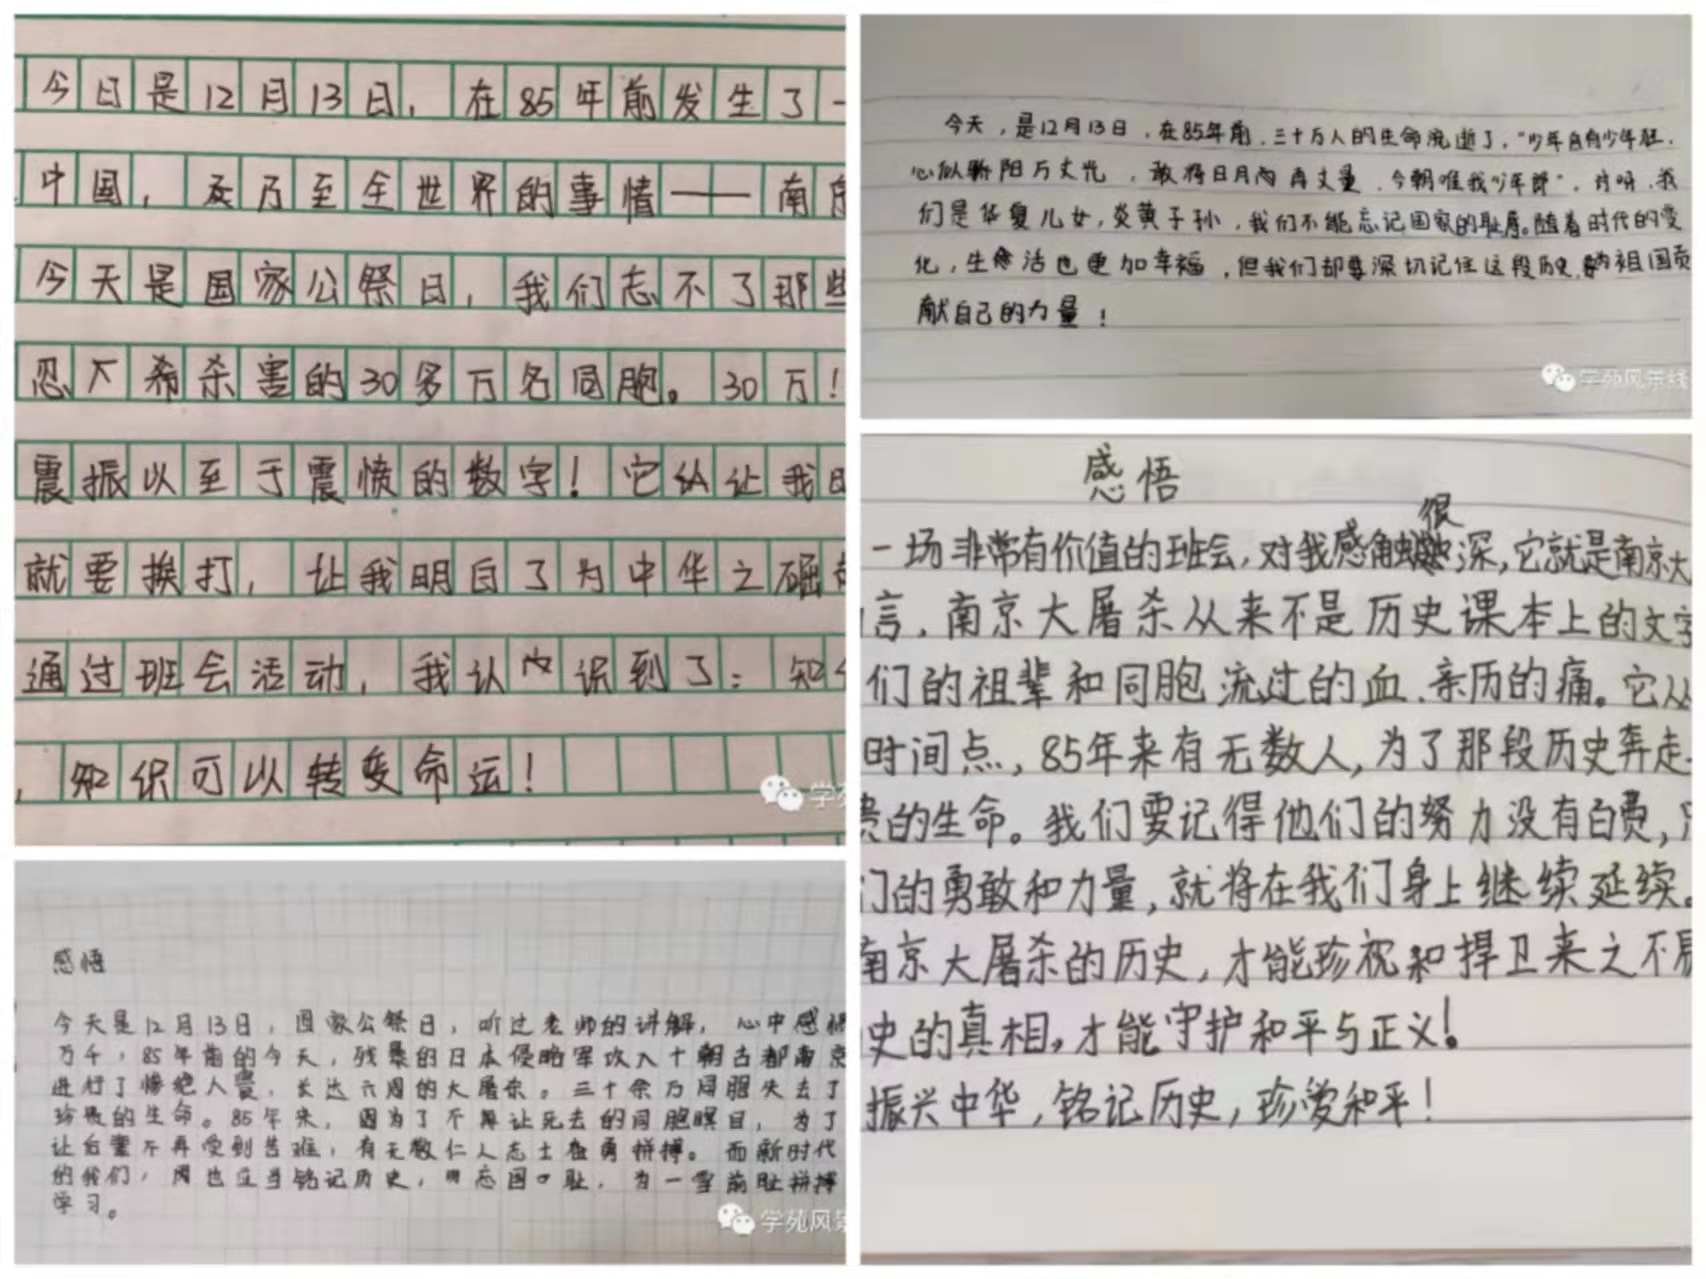 今日是12月13日，在85年前发生了一
中国，及乃至全世界的事情——南京
今天是国家公祭日，我们忘不了那些
忍不希杀害的30多万名同胞。30万！
震振以至于震愤的数字！它让我
就要挨打，让我明白了为中华之崛
通过班会活动，我认识到了：知
，知识可以转变命运！
学苑
今天，是12月13日，在85年前，三十万人的生命流逝了，“少年自有少年狂，
心似骄阳万丈光，敢将日月再丈量，今朝唯我少年郎”，对呀，我
们是华夏儿女，炎黄子孙，我们不能忘记国家的耻辱。随着时代的变
化，生活也更加幸福，但我们都要深切记住这段历史，为祖国贡
献自己的力量！
学苑风景线
感悟
一场非常有价值的班会，对我感触很深，它就是南京大
言，南京大屠杀从来不是历史课本上的文字
们的祖辈和同胞流过的血、亲历的痛。它从
时间点，85年来有无数人，为了那段历史奔走
贵的生命。我们要记得他们的努力没有白费，
们的勇敢和力量，就将在我们身上继续延续。
南京大屠杀的历史，才能珍视和捍卫来之不易
史的真相，才能守护和平与正义！
振兴中华，铭记历史，珍爱和平！
感悟
今天是12月13日，国家公祭日，听过老师的讲解，心中感慨
万千，85年前的今天，残暴的日本侵略军攻入十朝古都南京
进行了惨绝人寰，长达六周的大屠杀。三十余万同胞失去了
珍贵的生命。85年来，因为了不再让死去的同胞瞑目，为了
让后辈不再受到苦难，有无数仁人志士在勇拼搏。而新时代
的我们，也应当铭记历史，忘国耻，为一雪前耻拼搏
学习。
学苑风景